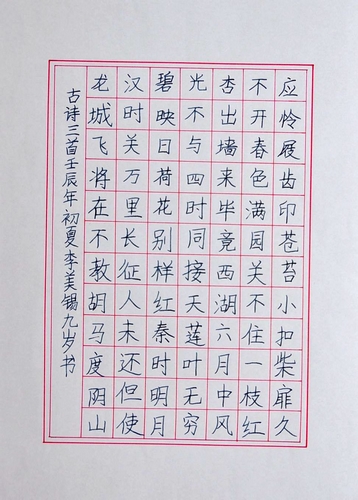 应怜屐齿印苍苔小扣柴扉久
不开春色满园关不住一枝红
杏出墙来毕竟西湖六月中风
光不与四时同接天莲叶无穷
碧映日荷花别样红秦时明月
汉时关万里长征人未还但使
龙城飞将在不教胡马度阴山
古诗三首壬辰年初夏李美锡九岁书